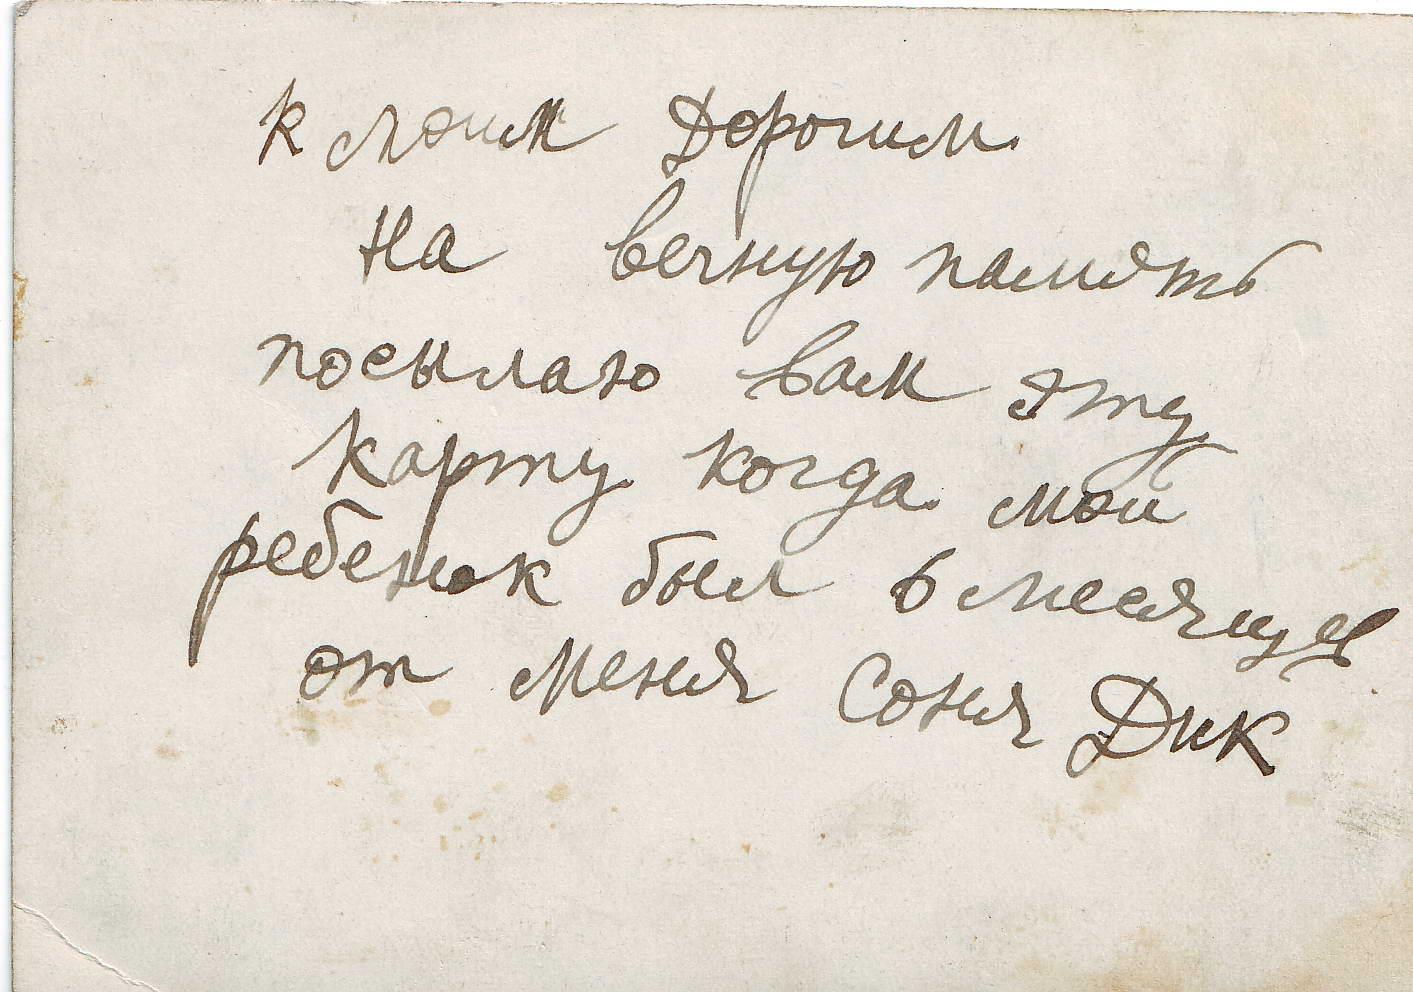 к моим Дорогим
На вечную память
посылаю вам эту
карту когда мой
ребенок был 6 месяцев
от меня Соня Дик